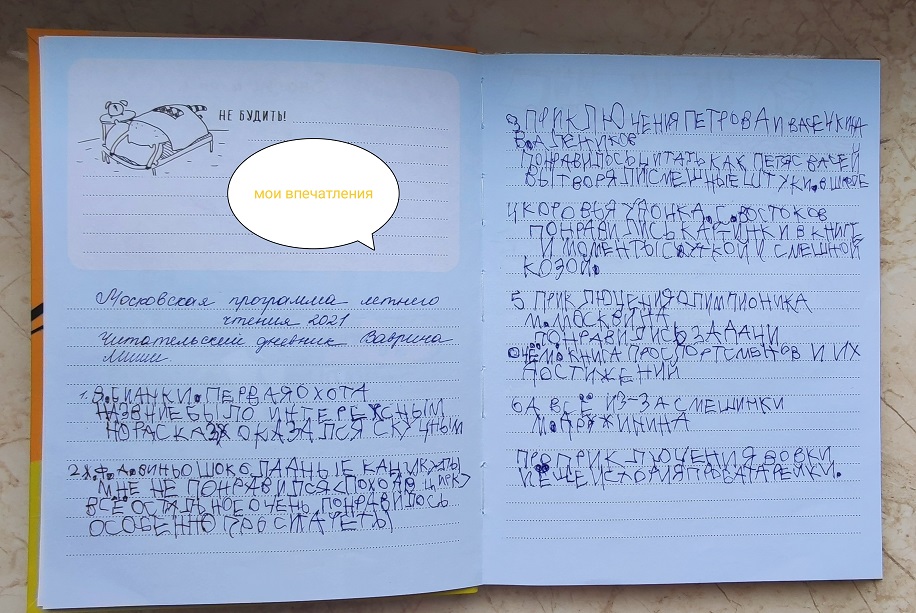 НЕ БУДИТЬ!
мои впечатления
Московская программа летнего
чтения 2021
Читательский дневник Ваврина
Миши.
1. В. БИАНКИ. ПЕРВАЯ ОХОТА
НАЗВНИЕ БЫЛО ИНТЕРЕСНЫМ
НО РАСКАЗ ОКАЗАЛСЯ СКУЧНЫМ
2. Ф. ДВИНЬО ШОКОЛАДНЫЕ КАНИКУЛЫ
МНЕ НЕ ПОНРАВИЛСЯ <ПОХОД В ЦИРК>
ВСЁ ОСТАЛЬНОЕ ОЧЕНЬ ПОНРАВИЛОСЬ
ОСОБЕННО ПРО
3 ПРИКЛЮЧЕНИЯ ПЕТРОВА И ВАСЕЧКИНА
В. АЛЕНИКОВ
ПОНРАВИЛОСЬ ЧИТАТЬ КАК ПЕТЯ С ВАСЕЙ
ВЫТВОРЯЛИ СМЕШНЫЕ ШТУКИ. В ШКОЛЕ
4 КОРОВЬЯ УДОЧКА. С. ВОСТОКОВ
ПОНРАВИЛИСЬ КАРТИНКИ В КНИГЕ
И МОМЕНТЫ С И СМЕШНОЙ
КОЗОЙ.
5. ПРИКЛЮЧЕНИЯ ОЛИМПИОНИКА
М. МОСКВИНА
ПОНРАВИЛИСЬ ЗАДАЧИ
О ЧЁМ. КНИГА ПРО СПОРТСМЕНОВ И ИХ
ПОСТИЖЕНИЙ
6 А ВСЁ ИЗ-ЗА СМЕШИНКИ
М. ДРУЖИНИНА
ПРО ПРИКЛЮЧЕНИЯ ВОВКИ
И ЕЩЕ ИСТОРИЯ ПРО БАТАРЕЙКИ.